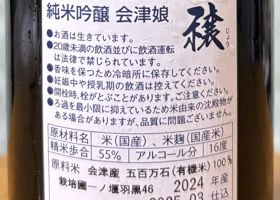 純米吟醸 会津娘
穣
じょう
●お酒は生きています。
●20歳未満の飲酒並びに飲酒運転
は法律で禁じられています。
●香味を保つため冷暗所に保存してください。
●妊娠中や授乳期の飲酒はお控えください。
●開栓時、栓がとぶことがあります。ご注意ください。
●ろ過を最小限に抑えているため米由来の沈殿物が
ある場合がありますが、品質に問題ございません。
原材料名 米(国産)、米麹(国産米)
精米歩合 55% アルコール分 16度
原料米 会津産 五百万石(有機米)100%
栽培圃一ノ堰羽黒46 2024年産
2025.03